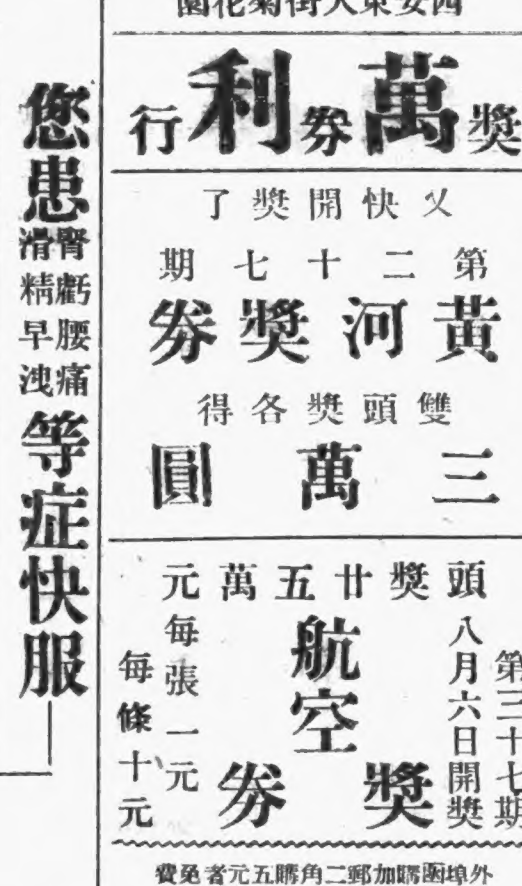 西安東大街菊花園
獎萬券利行
又快開獎了
第二十七期
黃河獎券
雙頭獎各得
三萬圓
頭獎廿五萬元
第三十七期
八月六日開獎
航空
獎券
每張一元
每條十元
外埠函購加郵二角購五元者免費
您患
腎虧腰痛
滑精早洩
等症快服